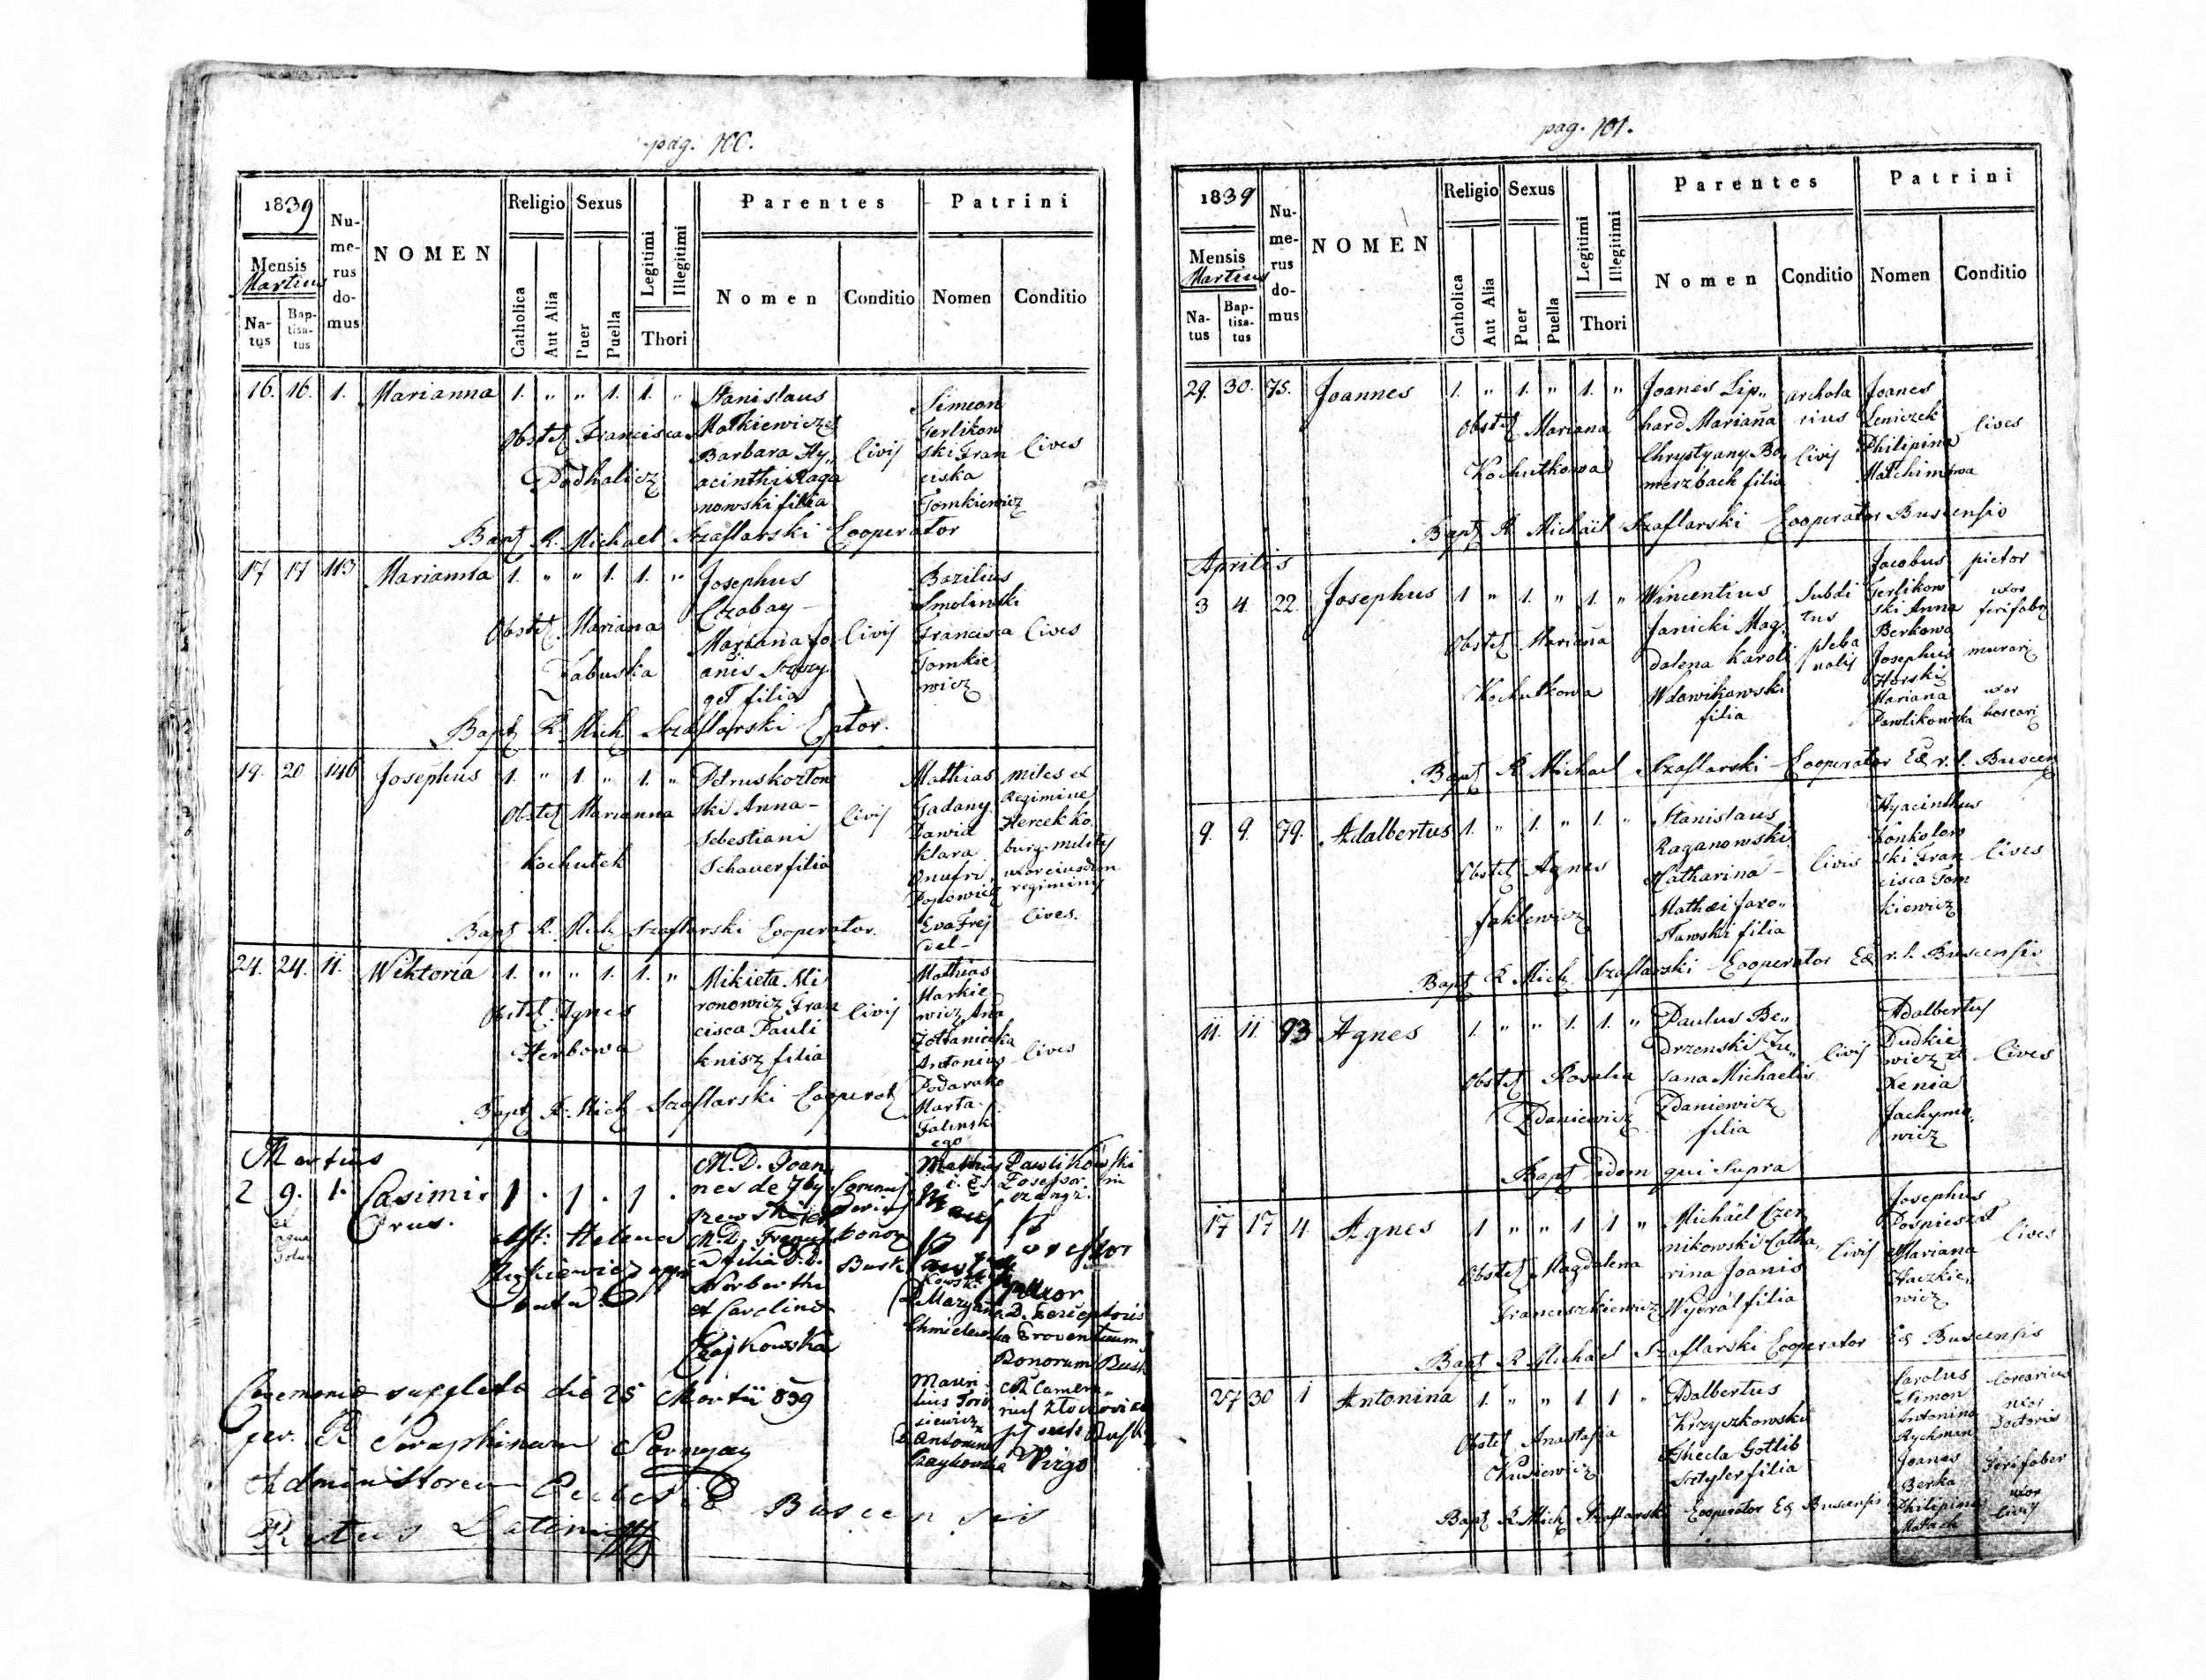 pag. 100.
1839
Mensis
Martius
Na-
tus
Bap-
tisa-
tus
Nu-
me-
rus
do-
mus
NOMEN
Religio
Catholica
Aut Alia
Sexus
Puer
Puella
Legitimi
Illegitimi
Thori
Parentes
Nomen
Conditio
Patrini
Nomen
Conditio
16. 16. 1. Marianna 1. " " 1. 1. "
Stanislaus
Matkiewicz et
Barbara Hy„
acinthi Raga
nowski filia
Civis
Simeon
Gerlikow
ski Fran
ciska
Tomkiewicz
Cives
Obstet Francisca
Podhalicz
Bapt R. Michael Szaflarski Cooperator
17 17 113 Marianna 1. " " 1. 1. "
Josephus
Czabay –
Mariana Jo
anis Szczy
geł filia
Civis
Bazilius
Smolinski
Francisca
Tomkie
wicz
Cives
Obstet. Mariana
Łabuska
Bapt R. Mich Szaflarski Cptor.
19. 20 146 Josephus 1. " 1. " 1. "
Petrus Korton
ski Anna –
Sebestiani
Schauer filia
Civis
Mathias
Gadany
Dawid
Klara
Onufri
Popowicz
Eva Frej
del –
miles ex
Regimine
Hercek Ko
burg. militis
uxor eiusdem
regiminis
Cives.
Obstet Marianna
Kochutek
Bapt R. Mich Szaflarski Cooperator.
24. 24. 11. Wiktoria 1. " " 1. 1. "
Mikieta Mi
ronowicz Fran
cisca Pauli
Knisz filia
Civis
Mathias
Markie
wicz Ana
Zołtanicka
Antonius
Podarako
Marta
Galinsk
ego
Cives
Obstet. Agnes
Herbowa
Bapt R. Mich Szaflarski Cooperat
Martius
2 9. 1. Casimi
rus.
1 . 1 . 1 .
ex
aqua
M.D. Joan
nes de
M.D. Franc
filia D.D.
Norberthi
et Carolina
Czajkowska
Mathias Pawlikowski
uxor
Maryan
Chmielewska
D. Perceptoris
Proventuum
Bonorum Busk
Mauri
tius
Antonina
Czaykowska
Virgo
asst: Helena
Ceremoniæ suppleta die 25 Martii 839
per. R Seraphinum
Administorem Ecclesiæ Buscensis
Ritus Latini
pag. 101.
1839
Mensis
Martius
Na-
tus
Bap-
tisa-
tus
Nu-
me-
rus
do-
mus
NOMEN
Religio
Catholica
Aut Alia
Sexus
Puer
Puella
Legitimi
Illegitimi
Thori
Parentes
Nomen
Conditio
Patrini
Nomen
Conditio
29. 30. 75. Joannes 1. " 1. " 1. "
Joanes Lip„
hard Mariana
Chrystyany Bo
merzbach filia
archola
rius
Civis
Joanes
Leniczek
Philipina
Matchimowa
Cives
Obstet Mariana
Kochutkowa
Bapt R Michael Szaflarski Cooperator Buscensis
Aprilis
3 4. 22. Josephus 1 " 1. " 1. "
Wincentius
Janicki Mag
dalena Karoli
Wdowikowski
filia
Subdi
tus
pleba
nalis
Jacobus
Gerlikow
ski Anna
Berkowa
Josephus
Horski
Mariana
Pawlikowska
pictor
uxor
ferifabri
murari
uxor
boscari
Obstet Mariana
Kochutkowa
Bapt R Michael Szaflarski Cooperator Ec r. l. Buscen
9. 9. 79. Adalbertus 1. " 1. " 1. "
Stanislaus
Raganowski
Katharina –
Mathæi Jaro„
sławski filia
Civis
Hyacinthus
Konkolow
ski Fran
cisca Tom
kiewicz
Cives
Obstet Agnes
Jaklewicz
Bapt R Mich Szaflarski Cooperator Ec r. l. Buscensis
11. 11. 93 Agnes 1. " " 1. 1. "
Paulus Be„
drzenski Zu„
sana Michaelis
Zdaniewicz
filia
Civis
Adalbertus
Dudkie
wicz et
Xenia
Jachymo„
wicz
Cives
Obstet Rosalia
Zdaniewicz
Bapt idem qui Supra
17 17 4. Agnes 1 " " 1 1 "
Michaël Czer
nikowski Catha„
rina Joanis
Wydrał filia
Civis
Josephus
Pospieszał
Mariana
Haczkie„
wicz
Cives
Obstet Magdalena
Franciszkiewicz
Bapt R Michael Szaflarski Cooperator Ec Buscensis
27 30 1 Antonina 1. " " 1 1 "
Adalbertus
Krzyszkowski
Thecla Gottlib
Sztyler filia
Carolus
Simon
Antonina
Rychman
Joanes
Berka
Philipina
Matach
Corearius
uxor
Doctoris
Ferifaber
uxor
Civis
Obstet Anastasia
Kusiewicz
Bapt R Mich Szaflarski Cooperator Ec Buscensis